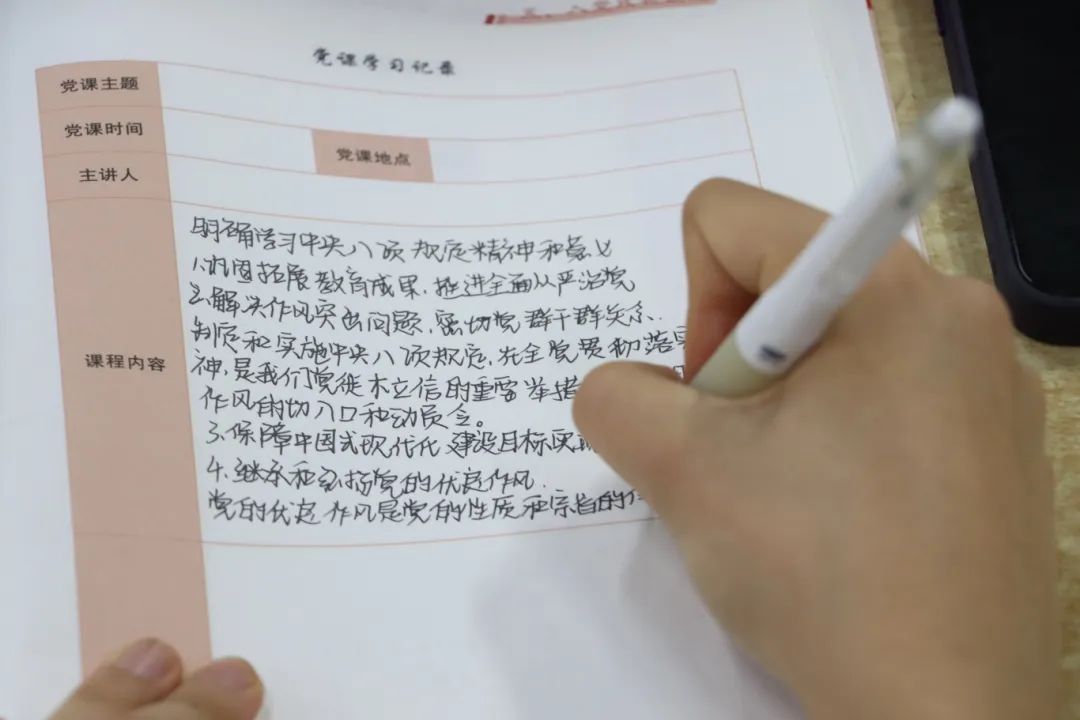 党课学习记录
党课主题
党课时间
党课地点
主讲人
课程内容
明确学习中央八项规定精神和意义
1.巩固拓展教育成果,推进全面从严治党
2.解决作风突出问题,密切党群干群关系.
制定和实施中央八项规定,在全党贯彻落实
神,是我们党徙木立信的重要举措
作风的切入口和动员令。
3.保障中国式现代化建设目标实现
4.继承和弘扬党的优良作风.
党的优良作风是党的性质和宗旨的